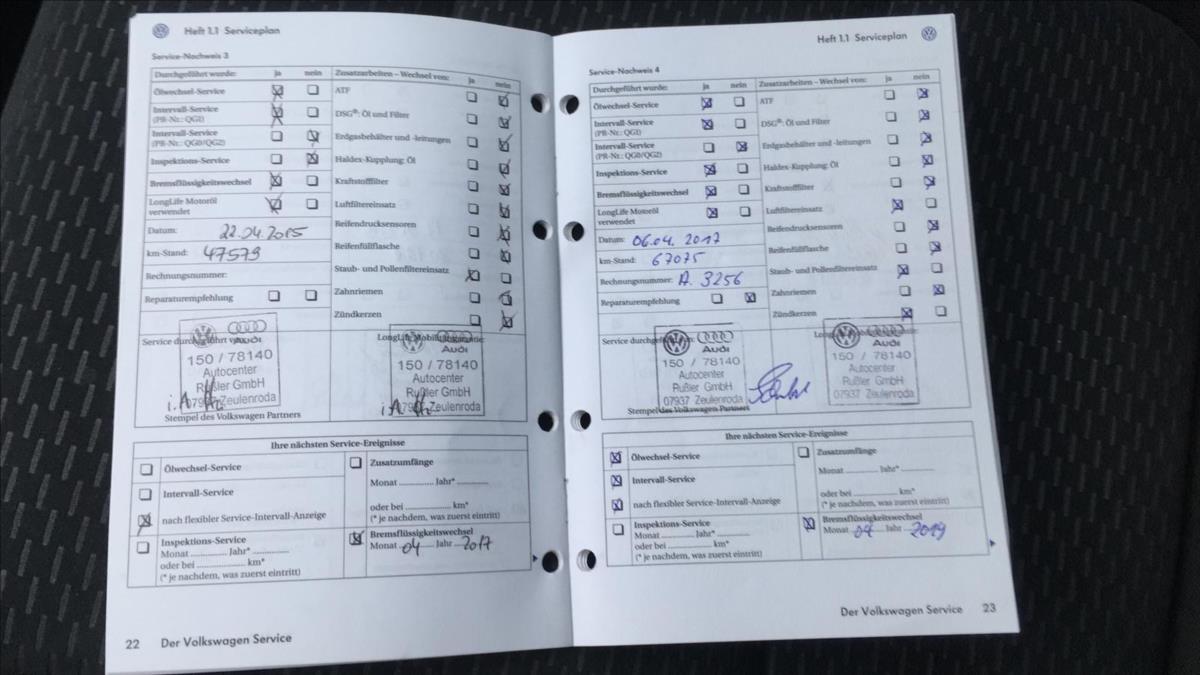 Heft 1.1 Serviceplan
Service-Nachweis 3
Durchgeführt wurde: ja nein
Ölwechsel-Service
Intervall-Service
(PR-Nr.: QG1)
Intervall-Service
(PR-Nr.: QG0/QG2)
Inspektions-Service
Bremsflüssigkeitswechsel
LongLife Motoröl
verwendet
Datum: 22.04.2015
km-Stand: 47579
Rechnungsnummer:
Reparaturempfehlung
Zusatzarbeiten – Wechsel von: ja nein
ATF
DSG®: Öl und Filter
Erdgasbehälter und -leitungen
Haldex-Kupplung: Öl
Kraftstofffilter
Luftfiltereinsatz
Reifendrucksensoren
Reifenfüllflasche
Staub- und Pollenfiltereinsatz
Zahnriemen
Zündkerzen
Service durchgeführt von:
Audi
150 / 78140
Autocenter
Rußler GmbH
07937 Zeulenroda
i.A.
Stempel des Volkswagen Partners
LongLife Mobilitätsgarantie:
Audi
150 / 78140
Autocenter
Rußler GmbH
07937 Zeulenroda
i.A.
Ihre nächsten Service-Ereignisse
Ölwechsel-Service
Intervall-Service
nach flexibler Service-Intervall-Anzeige
Inspektions-Service
Monat ............. Jahr* .............
oder bei ............. km*
(* je nachdem, was zuerst eintritt)
Zusatzumfänge
Monat ............. Jahr* .............
oder bei ............. km*
(* je nachdem, was zuerst eintritt)
Bremsflüssigkeitswechsel
Monat 04 Jahr 2017
22 Der Volkswagen Service
Heft 1.1 Serviceplan
Service-Nachweis 4
Durchgeführt wurde: ja nein
Ölwechsel-Service
Intervall-Service
(PR-Nr.: QG1)
Intervall-Service
(PR-Nr.: QG0/QG2)
Inspektions-Service
Bremsflüssigkeitswechsel
LongLife Motoröl
verwendet
Datum: 06.04.2017
km-Stand: 67075
Rechnungsnummer: A. 3256
Reparaturempfehlung
Zusatzarbeiten – Wechsel von: ja nein
ATF
DSG®: Öl und Filter
Erdgasbehälter und -leitungen
Haldex-Kupplung: Öl
Kraftstofffilter
Luftfiltereinsatz
Reifendrucksensoren
Reifenfüllflasche
Staub- und Pollenfiltereinsatz
Zahnriemen
Zündkerzen
Service durchgeführt von:
Audi
150 / 78140
Autocenter
Rußler GmbH
07937 Zeulenroda
Stempel des Volkswagen Partners
Audi
150 / 78140
Autocenter
Rußler GmbH
07937 Zeulenroda
Ihre nächsten Service-Ereignisse
Ölwechsel-Service
Intervall-Service
nach flexibler Service-Intervall-Anzeige
Inspektions-Service
Monat ............. Jahr* .............
oder bei ............. km*
(* je nachdem, was zuerst eintritt)
Zusatzumfänge
Monat ............. Jahr* .............
oder bei ............. km*
(* je nachdem, was zuerst eintritt)
Bremsflüssigkeitswechsel
Monat 04 Jahr 2019
Der Volkswagen Service 23